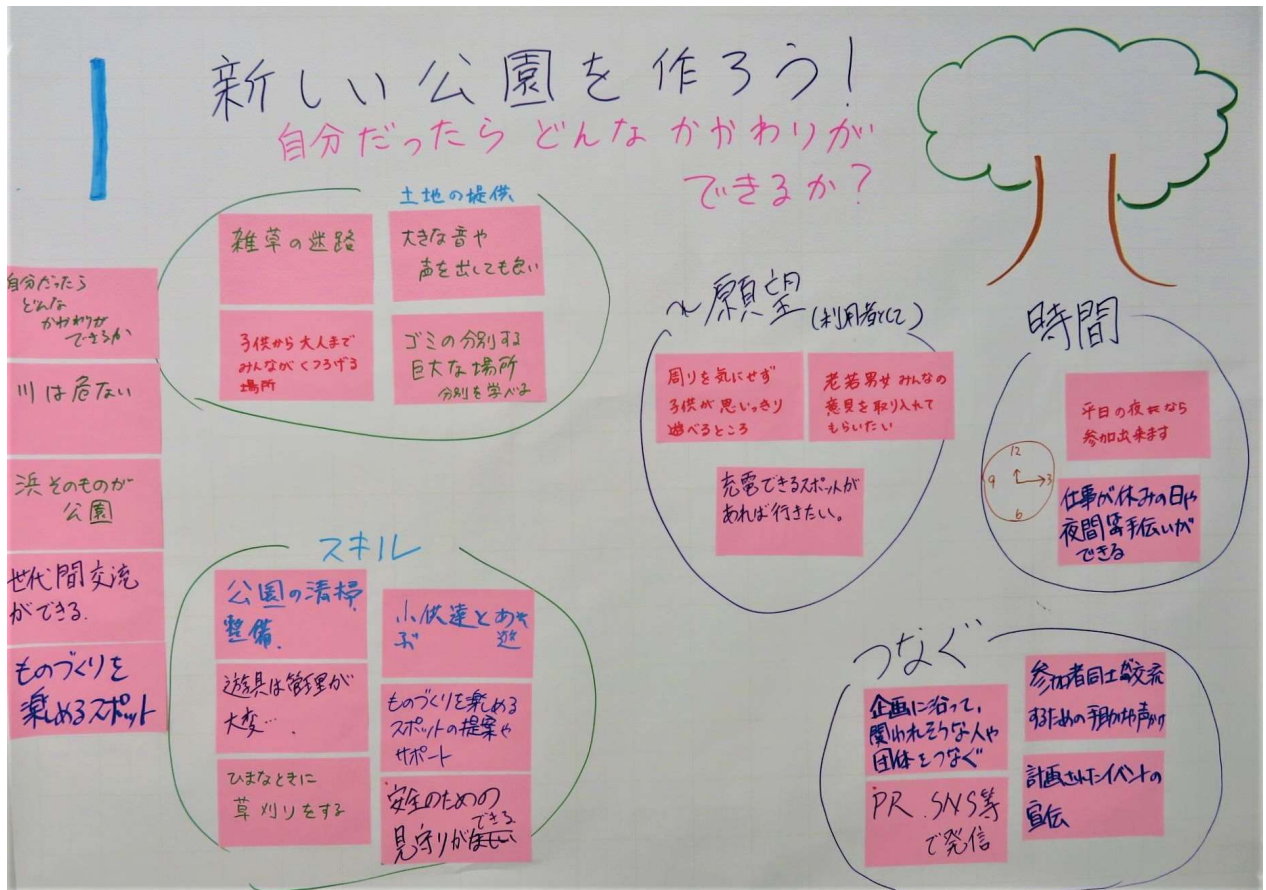 1
新しい公園を作ろう!
自分だったら どんな かかわりが
できるか?
自分だったら
どんな
かかわりが
できるか
川は危ない
浜そのものが
公園
世代間交流
ができる.
ものづくりを
楽しめるスポット
土地の提供
雑草の迷路
大きな音や
声を出しても良い
子供から大人まで
みんながくつろげる
場所
ゴミの分別する
巨大な場所
分別を学べる
スキル
公園の清掃.
整備.
小供達とあそ
ぶ 遊
遊具は管理が
大変…
ものづくりを楽しめる
スポットの提案や
サポート
ひまなときに
草刈りをする
安全のための
できる
見守りがほしい
〜願望(利用者として)
周りを気にせず
子供が思いっきり
遊べるところ
老若男女みんなの
意見を取り入れて
もらいたい
充電できるスポットが
あれば行きたい。
時間
平日の夜なら
参加出来ます
12
9
3
6
仕事が休みの日や
夜間等手伝いが
できる
つなぐ
企画に沿って、
関われそうな人や
団体をつなぐ
参加者同士が交流
するための手助けや声かけ
PR.SNS等
で発信
計画されたイベントの
宣伝